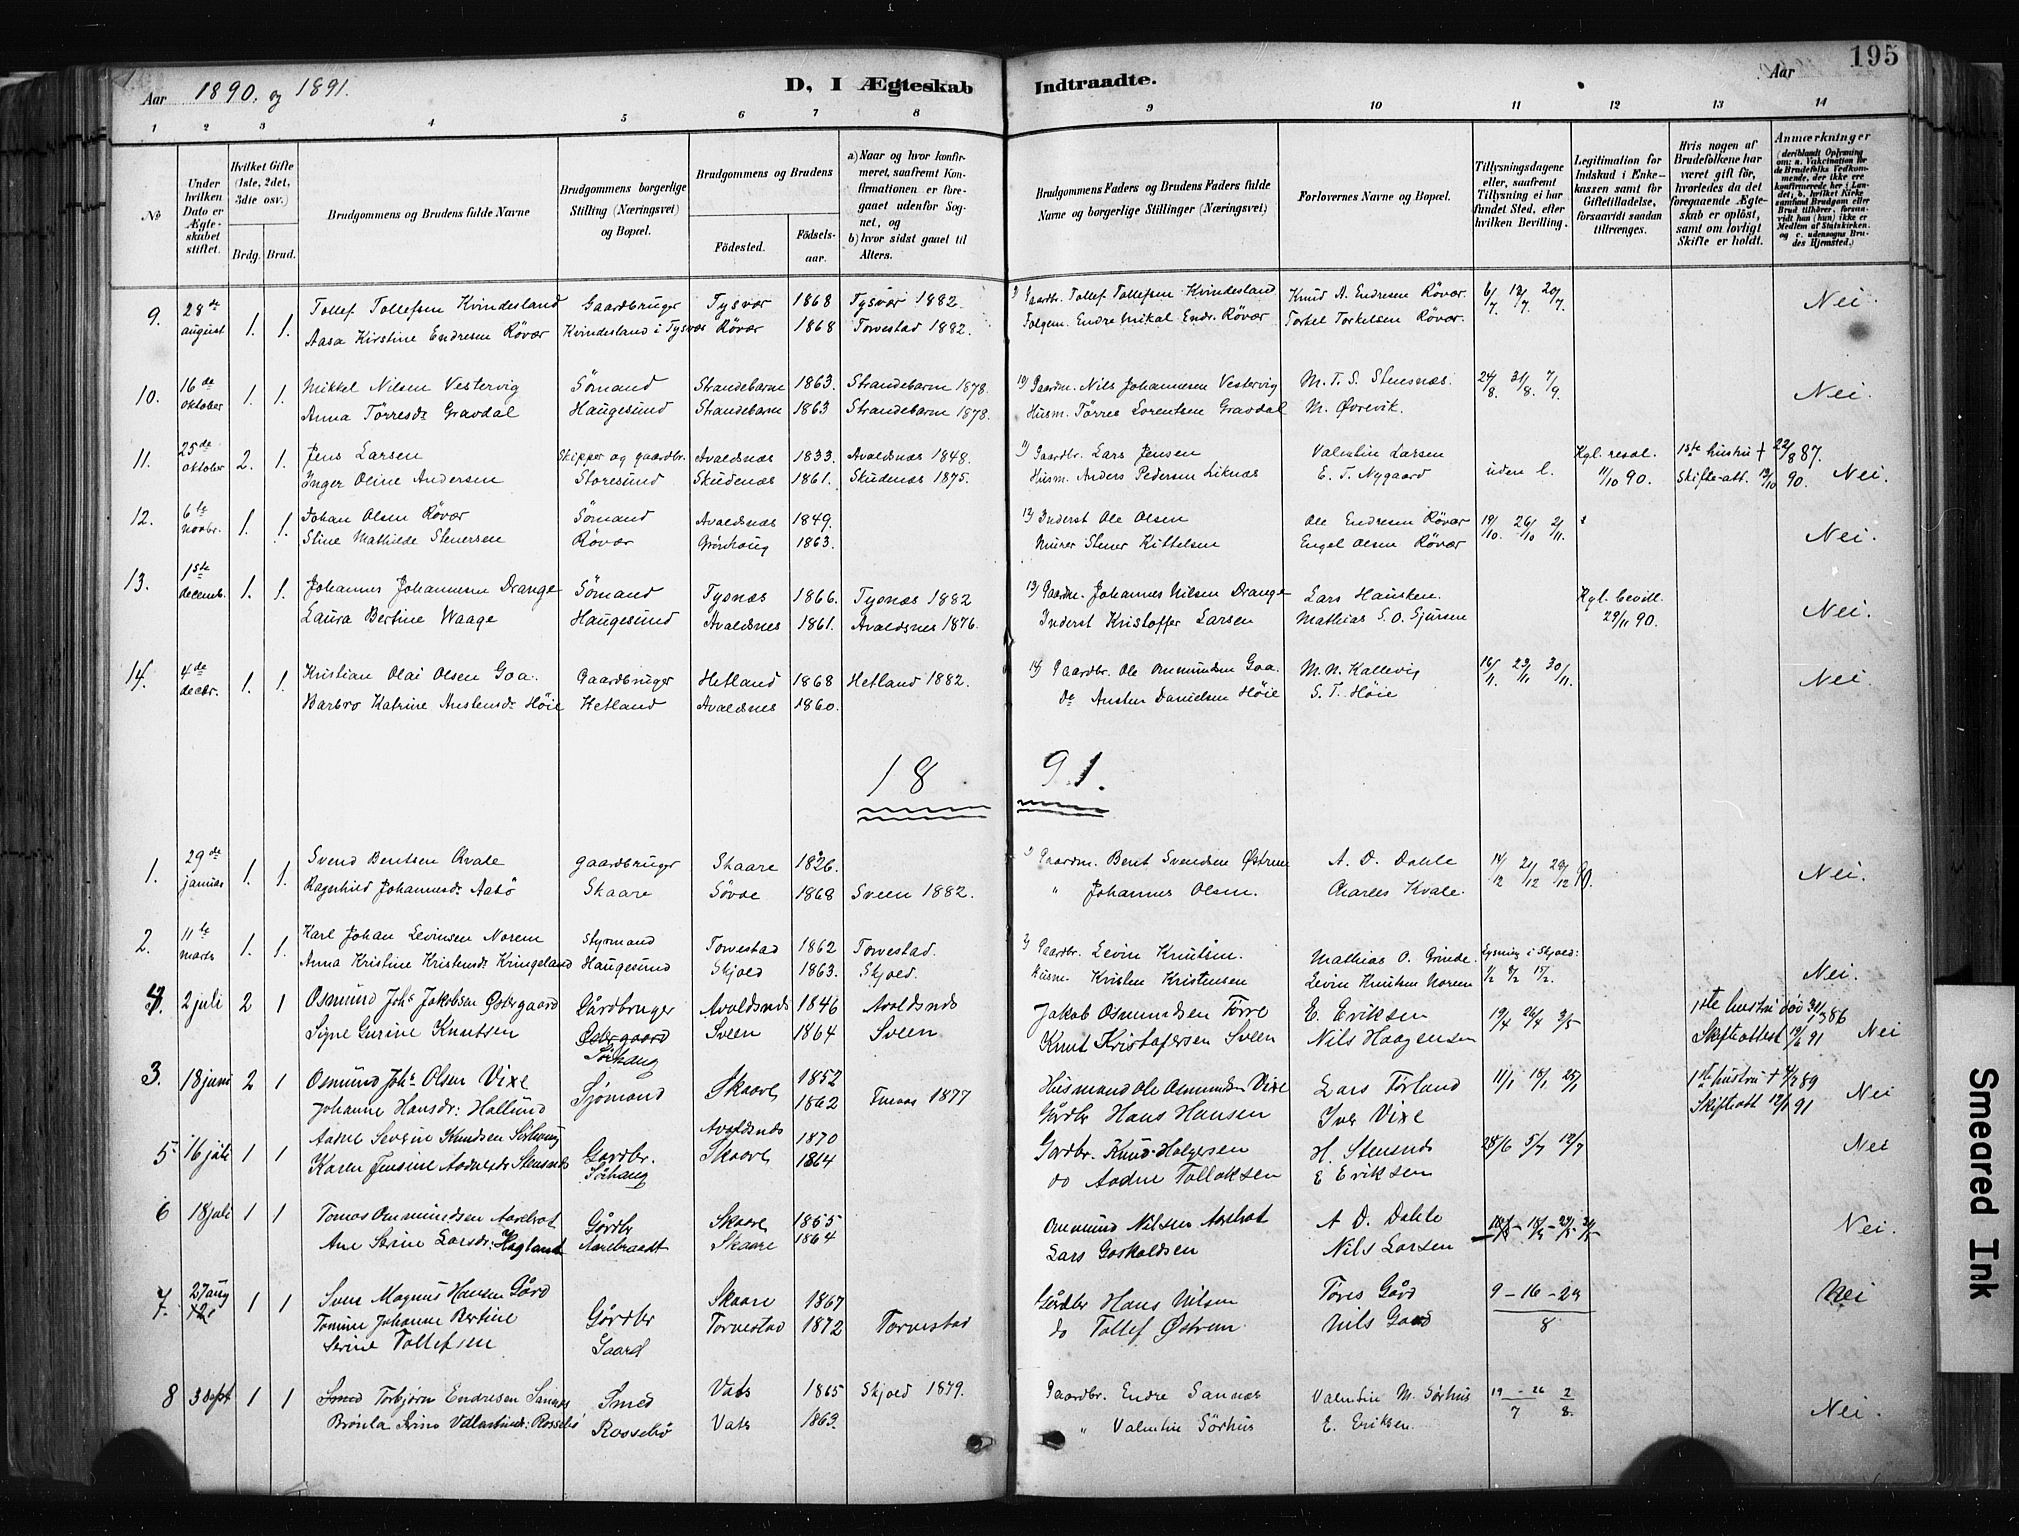 195
Aar 1890. og 1891.
D, I Ægteskab Indtraadte.
Aar
1 2 3 4 5 6 7 8 9 10 11 12 13 14
No
Under hvilken Dato er Ægteskabet stiftet.
Hvilket Gifte (1ste, 2det, 3die osv.)
Brdg. Brud.
Brudgommens og Brudens fulde Navne
Brudgommens borgerlige Stilling (Næringsvei) og Bopæl.
Brudgommens og Brudens
Fødested.
Fødselsaar.
a) Naar og hvor konfirmeret, saafremt Konfirmationen er foregaaet udenfor Sognet, og
b) hvor sidst gaaet til Alters.
Brudgommens Faders og Brudens Faders fulde Navne og borgerlige Stillinger (Næringsvei)
Forlovernes Navne og Bopæl.
Tillysningsdagene eller, saafremt Tillysning ei har fundet Sted, efter hvilken Bevilling.
Legitimation for Indskud i Enkekassen samt for Giftetilladelse, forsaavidt saadan tiltrænges.
Hvis nogen af Brudefolkene har været gift før, hvorledes da det foregaaende Ægteskab er opløst, samt om lovligt Skifte er holdt.
Anmærkninger (deriblandt Oplysning om: a. Vakcination for de Brudefolks Vedkommende, der ikke ere konfirmerede her i Landet; b. hvilket Kirkesamfund Brudgom eller Brud tilhører, forsaavidt han (hun) ikke er Medlem af Statskirken. og c. udensogns Brudes Hjemsted.)
9. 28de august 1. 1. Tollef Tollefsen Kvindesland Gaardbruger Tysvær 1868 Tysvær 1882. Gaardbr. Tollef Tollefsen Kvindesland Knud A. Endresen Røvær. 6/7 13/7 20/7. Nei.
Aasa Kirstine Endresen Røvær Kvindesland i Tysvær Røvær 1868 Torvestad 1882. Endre Mikal Endr. Røvær Torkel Torkelsen Røvær.
10. 16de oktober 1. 1. Mikkel Nilsen Vestervig Sømand Strandebarm 1863. Strandebarm 1878. 10) Gaardm. Nils Johannesen Vestervig M. T. S. Stensnæs. 24/8. 31/8. 7/9. Nei.
Anna Tørresdr Gravdal Haugesund Strandebarm 1863 Strandebarm 1878. Husm. Tørres Lorentsen Gravdal M. Øvrevik.
11. 25de oktober 2. 1. Jens Larsen Skipper og gaardbr. Avaldsnæs 1833. Avaldsnæs 1848. 11) Gaardbr. Lars Jensen Valentin Larsen uden l. Kgl. resol. 11/10 90. 1ste hustru + 22/8 87. Nei.
Inger Oline Andersen Storesund Skudenæs 1861. Skudenæs 1875. Husm. Anders Pedersen Liknæs E. T. Nygaard Skifte-att. 13/10 90.
12. 6te novbr. 1. 1. Johan Olsen Røvær Sømand Avaldsnæs 1849. 12) Inderst Ole Olsen Ole Endresen Røvær 19/10. 26/10 2/11. Nei.
Stine Mathilde Stenersen Røvær Grønhaug 1863. Murer Stener Kittelsen Engel Olsen Røvær
13. 1ste decemb. 1. 1. Johannes Johannesen Drange Sømand Tysnæs 1866. Tysnæs 1882 13) Gaardm. Johannes Nilsen Drange Lars Hausken Kgl. bevill. 29/11 90. Nei.
Laura Bertine Waage Haugesund Avaldsnes 1861. Avaldsnes 1876. Inderst Kristoffer Larsen Mathias S. O. Sjursen
14. 4de decbr. 1. 1. Kristian Olai Olsen Goa. Gaardbruger Hetland 1868 Hetland 1882. 14) Gaardbr. Ole Omundsen Goa. M. N. Kallevig 16/11. 23/11 30/11. Nei.
Barbro Katrine Austensdr Høie Hetland Avaldsnes 1860. Do Austen Danielsen Høie S. T. Høie
1891.
1. 29de januar 1. 1. Svend Bentsen Kvale gaardbruger Skaare 1826. 1) Gaardm. Bent Svendsen Østrem A. D. Dahle 14/12 21/12 28/12 90. Nei.
Ragnhild Johannesdr Aabø Skaare Søvde 1868 Sveen 1882. " Johannes Olsen. Charles Kvale.
2. 11te marts 1. 1. Karl Johan Levinsen Norem Styrmand Torvestad 1862 Torvestad. 2) Gaardbr. Levin Knutsen. Mathias O. Grinde. Lysning i Skjold: Nei.
Anna Kristine Kristensdr Kringeland Haugesund Skjold 1863. Skjold. Husm. Kristen Kristensen Levin Knutsen Norem 1/2 8/2 15/2.
4. 2 juli 2 1 Osmund Johs Jakobsen Østergaard Gårdbruger Avaldsnæs 1846 Avaldsnæs Jakob Osmundsen Førre E. Eriksen 19/4 26/4 3/5 1ste hustru død 31/1 86 Nei
Signe Gurine Knutsen Østergaard Sørhaug Sveen 1864 Sveen Knut Kristofersen Sveen Nils Haagensen Skifteattest 12/6 91
3. 18 juni 2 1 Osmund Johs Olsen Vixe Sjømand Skaare 1852 Husmand Ole Osmundsen Vixe Lars Førland 11/1 18/1 25/1 1ste hustru + 4/7 89 Nei
Johanne Hansdr: Hallund 1862 1877 Gårdbr Hans Hansen Iver Vixe Skifteatt 12/1 91
5 16 juli 1 1 Aadne Severin Knudsen Sørhaug Gardbr. Avaldsnæs 1870 Gardbr. Knud Holgersen H. Stensnæs 28/6 5/7 12/7 Nei
Karen Jensine Aadnesdr Stensnæs Sørhaug Skaare 1864 do Aadne Tollaksen E Eriksen
6 18 juli 1 1 Tomas Ommundsen Aarebrot Gårdbr Skaare 1855 Ommund Nilsen Aarebrot A. D. Dahle Nei.
Ane Serine Larsdr: Hagland Aarebraadt Skaare 1864 Lars Gaskoldsen Nils Larsen
7. 27 aug 1 1 Sven Magnus Hansen Gård Gårdbr Skaare 1867 Gårdbr Hans Nilsen Tøres Gård 9 - 16 - 23 Nei
Tomine Johanne Bertine Serine Tollefsen Gaard Torvestad 1872 Torvestad do Tollef Østrem Nils Gaard 8
8 3 sept 1 1 Smed Torbjørn Endresen Sannæs Smed Vats 1865 Skjold 1879. Gaardbr. Endre Sannæs Valentin M. Sørhus 19 - 26/7 2/8. Nei.
Rossebø Vats 1863. " Valentin Sørhus E. Eriksen.
Smeared Ink